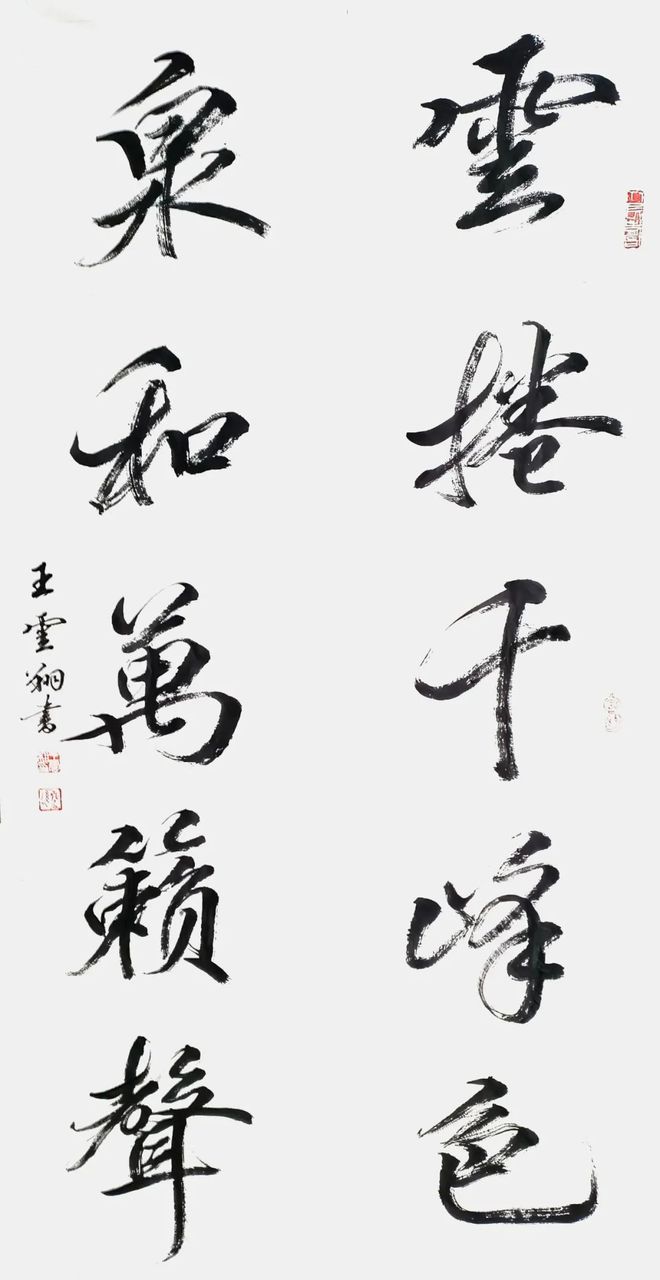 雲捲千峰色
泉和萬籟聲
王雲翔書